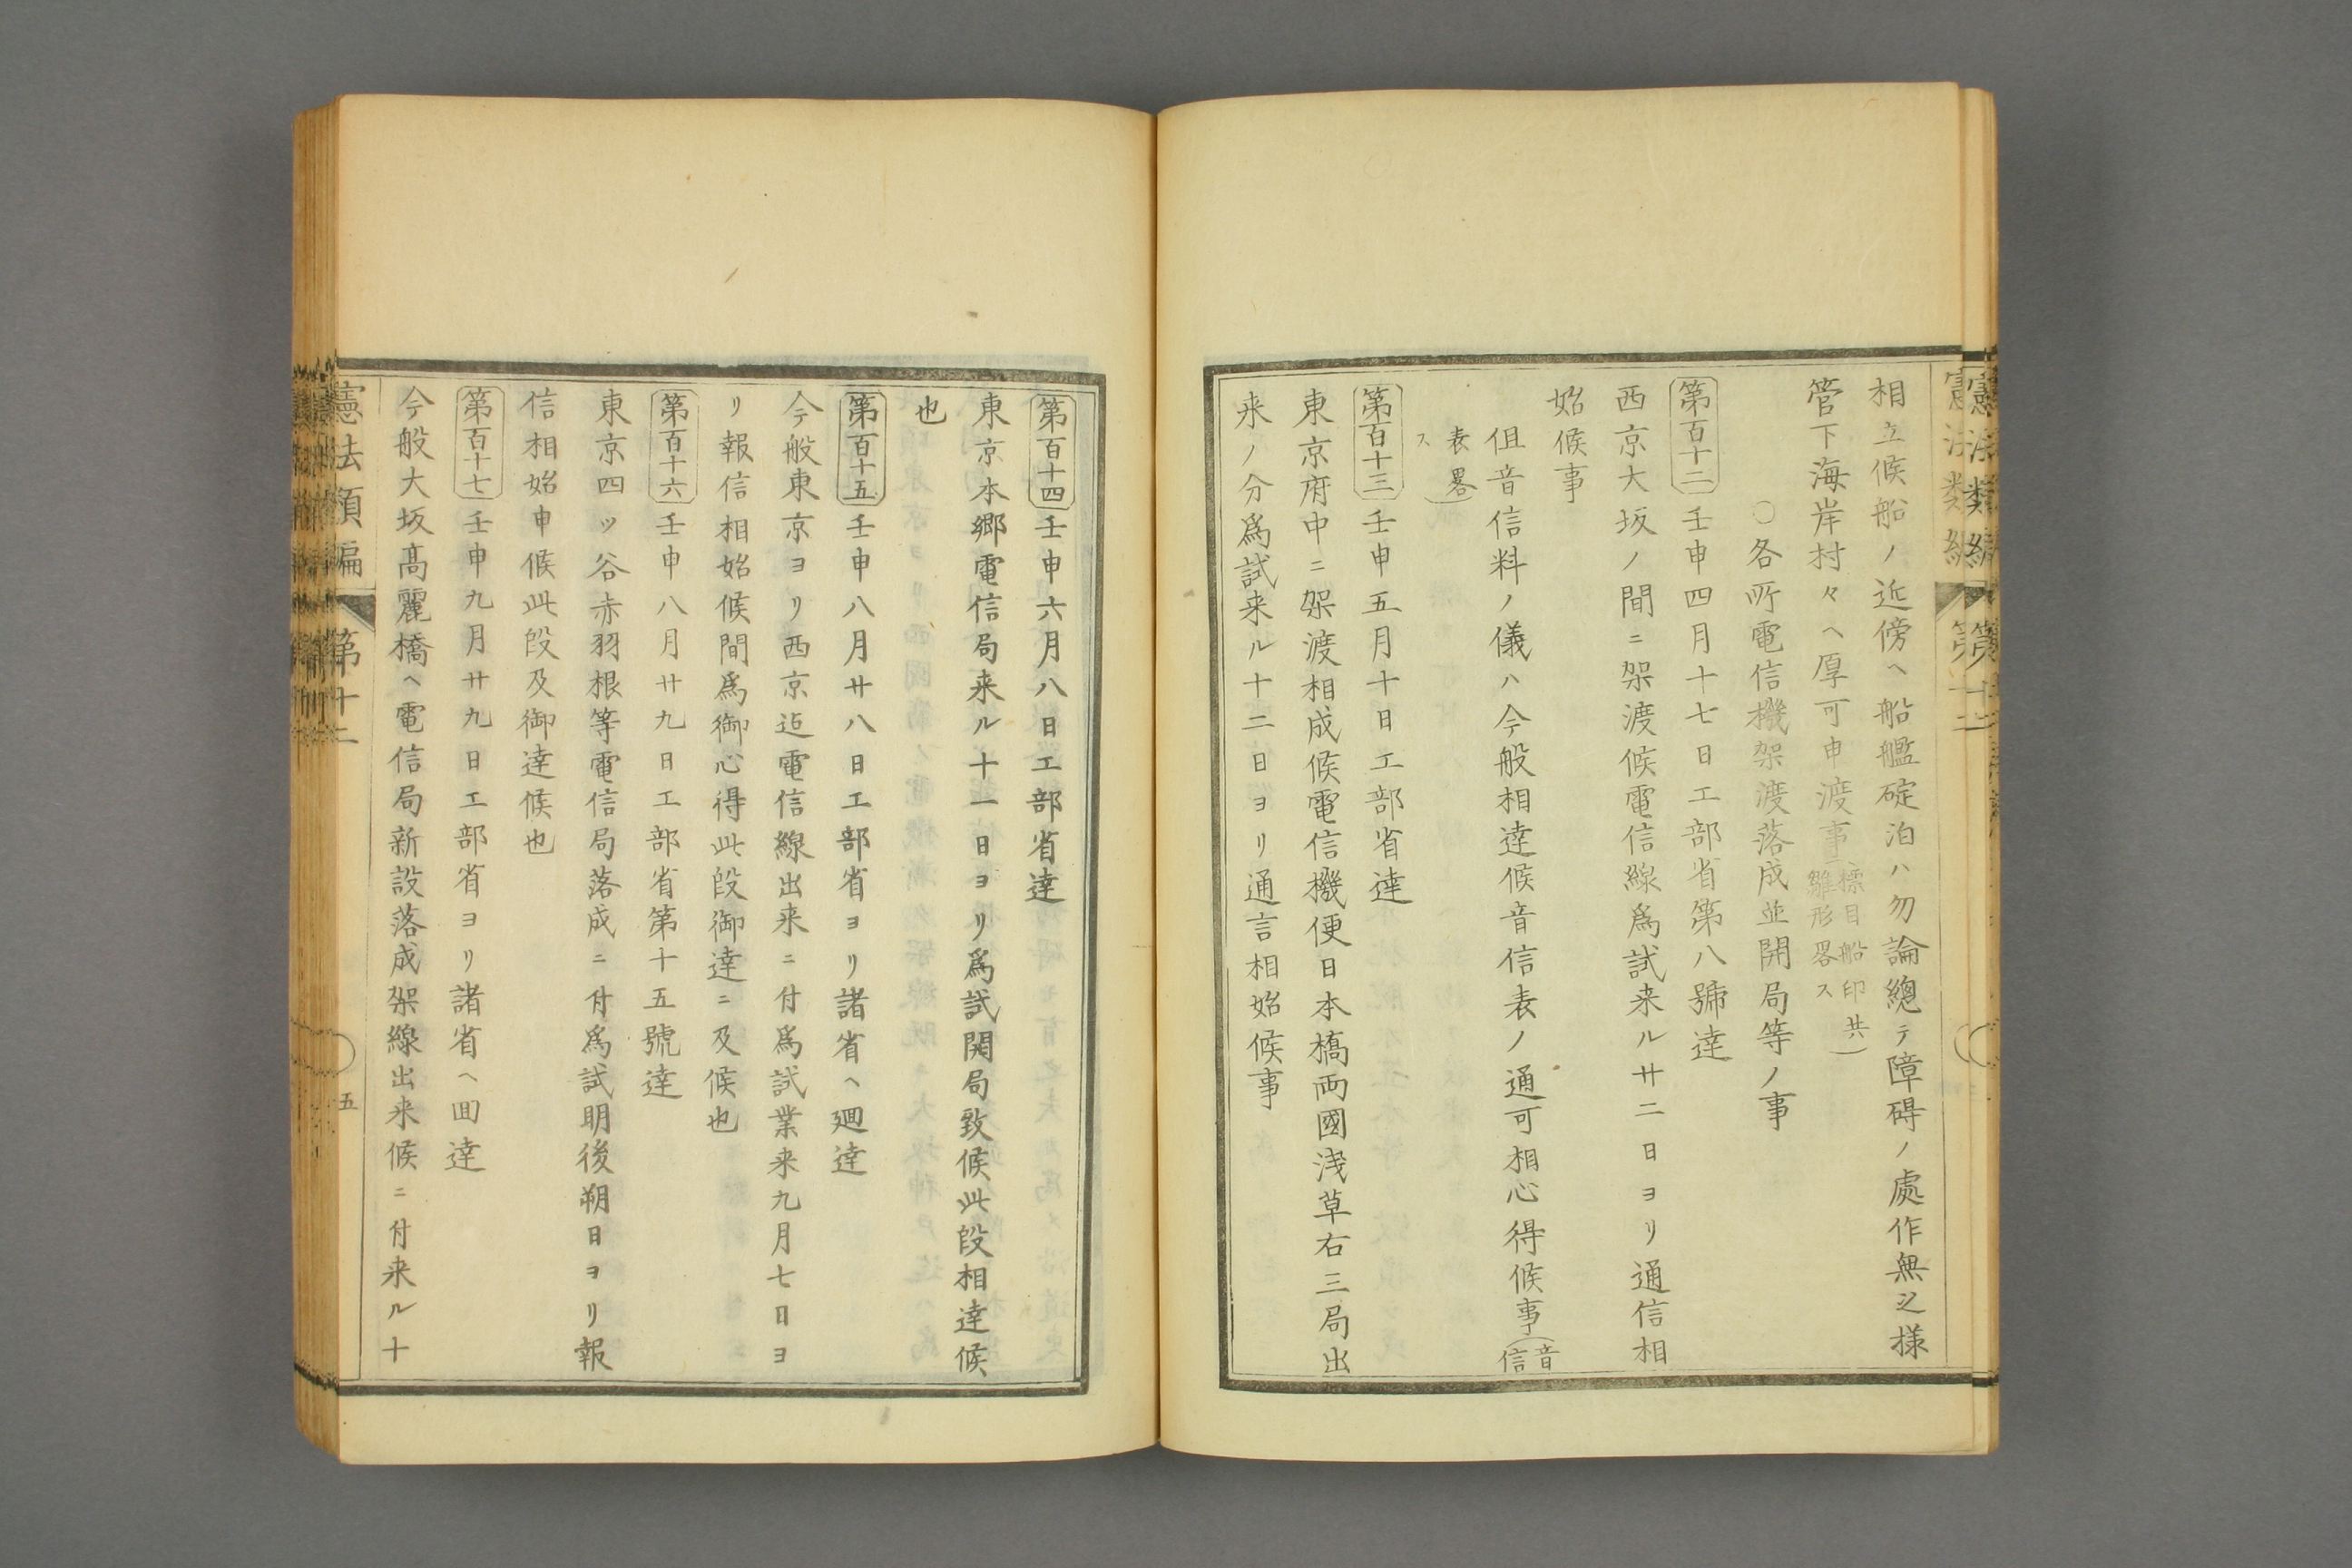 相立候船ノ近傍ヘ船艦碇泊ハ勿論總テ障碍ノ處作無之様
管下海岸村々ヘ厚可申渡事(標目船印共雛形畧ス)
○各所電信機架渡落成並開局等ノ事
第百十二 壬申四月十七日工部省第八號達
西京大坂ノ間ニ架渡候電信線爲試来ル廿二日ヨリ通信相
始候事
伹音信料ノ儀ハ今般相達候音信表ノ通可相心得候事(音信
表畧ス)
第百十三 壬申五月十日工部省達
東京府中ニ架渡相成候電信機便日本橋両國浅草右三局出
来ノ分爲試来ル十二日ヨリ通言相始候事
第百十四 壬申六月八日工部省達
東京本郷電信局来ル十一日ヨリ爲試開局致候此段相達候
也
第百十五 壬申八月廿八日工部省ヨリ諸省ヘ廻達
今般東京ヨリ西京迄電信線出来ニ付爲試業来九月七日ヨ
リ報信相始候間爲御心得此段御達ニ及候也
第百十六 壬申八月廿九日工部省第十五號達
東京四ッ谷赤羽根等電信局落成ニ付爲試明後朔日ヨリ報
信相始申候此段及御達候也
第百十七 壬申九月廿九日工部省ヨリ諸省ヘ回達
今般大坂高麗橋ヘ電信局新設落成架線出来候ニ付来ル十
憲法類編 第十二
五